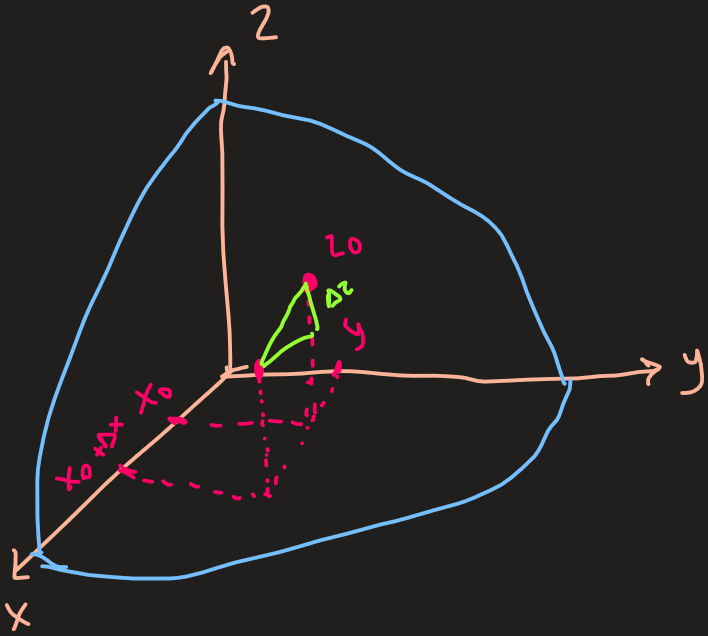 z
z0
Δz
y
y
x0
x0+Δx
x